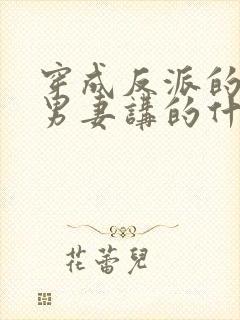 穿成反派的
男妻講的什
花蕾兒